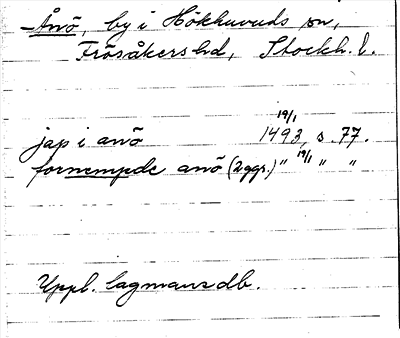 Ånö, by i Hökhuvuds sn,
Frösåkers hd, Stockh. l.
19/1
jap i anö 1493, s. 77.
fornempde anö (2 ggr.) " 19/1 " "
Uppl. lagmansdb.